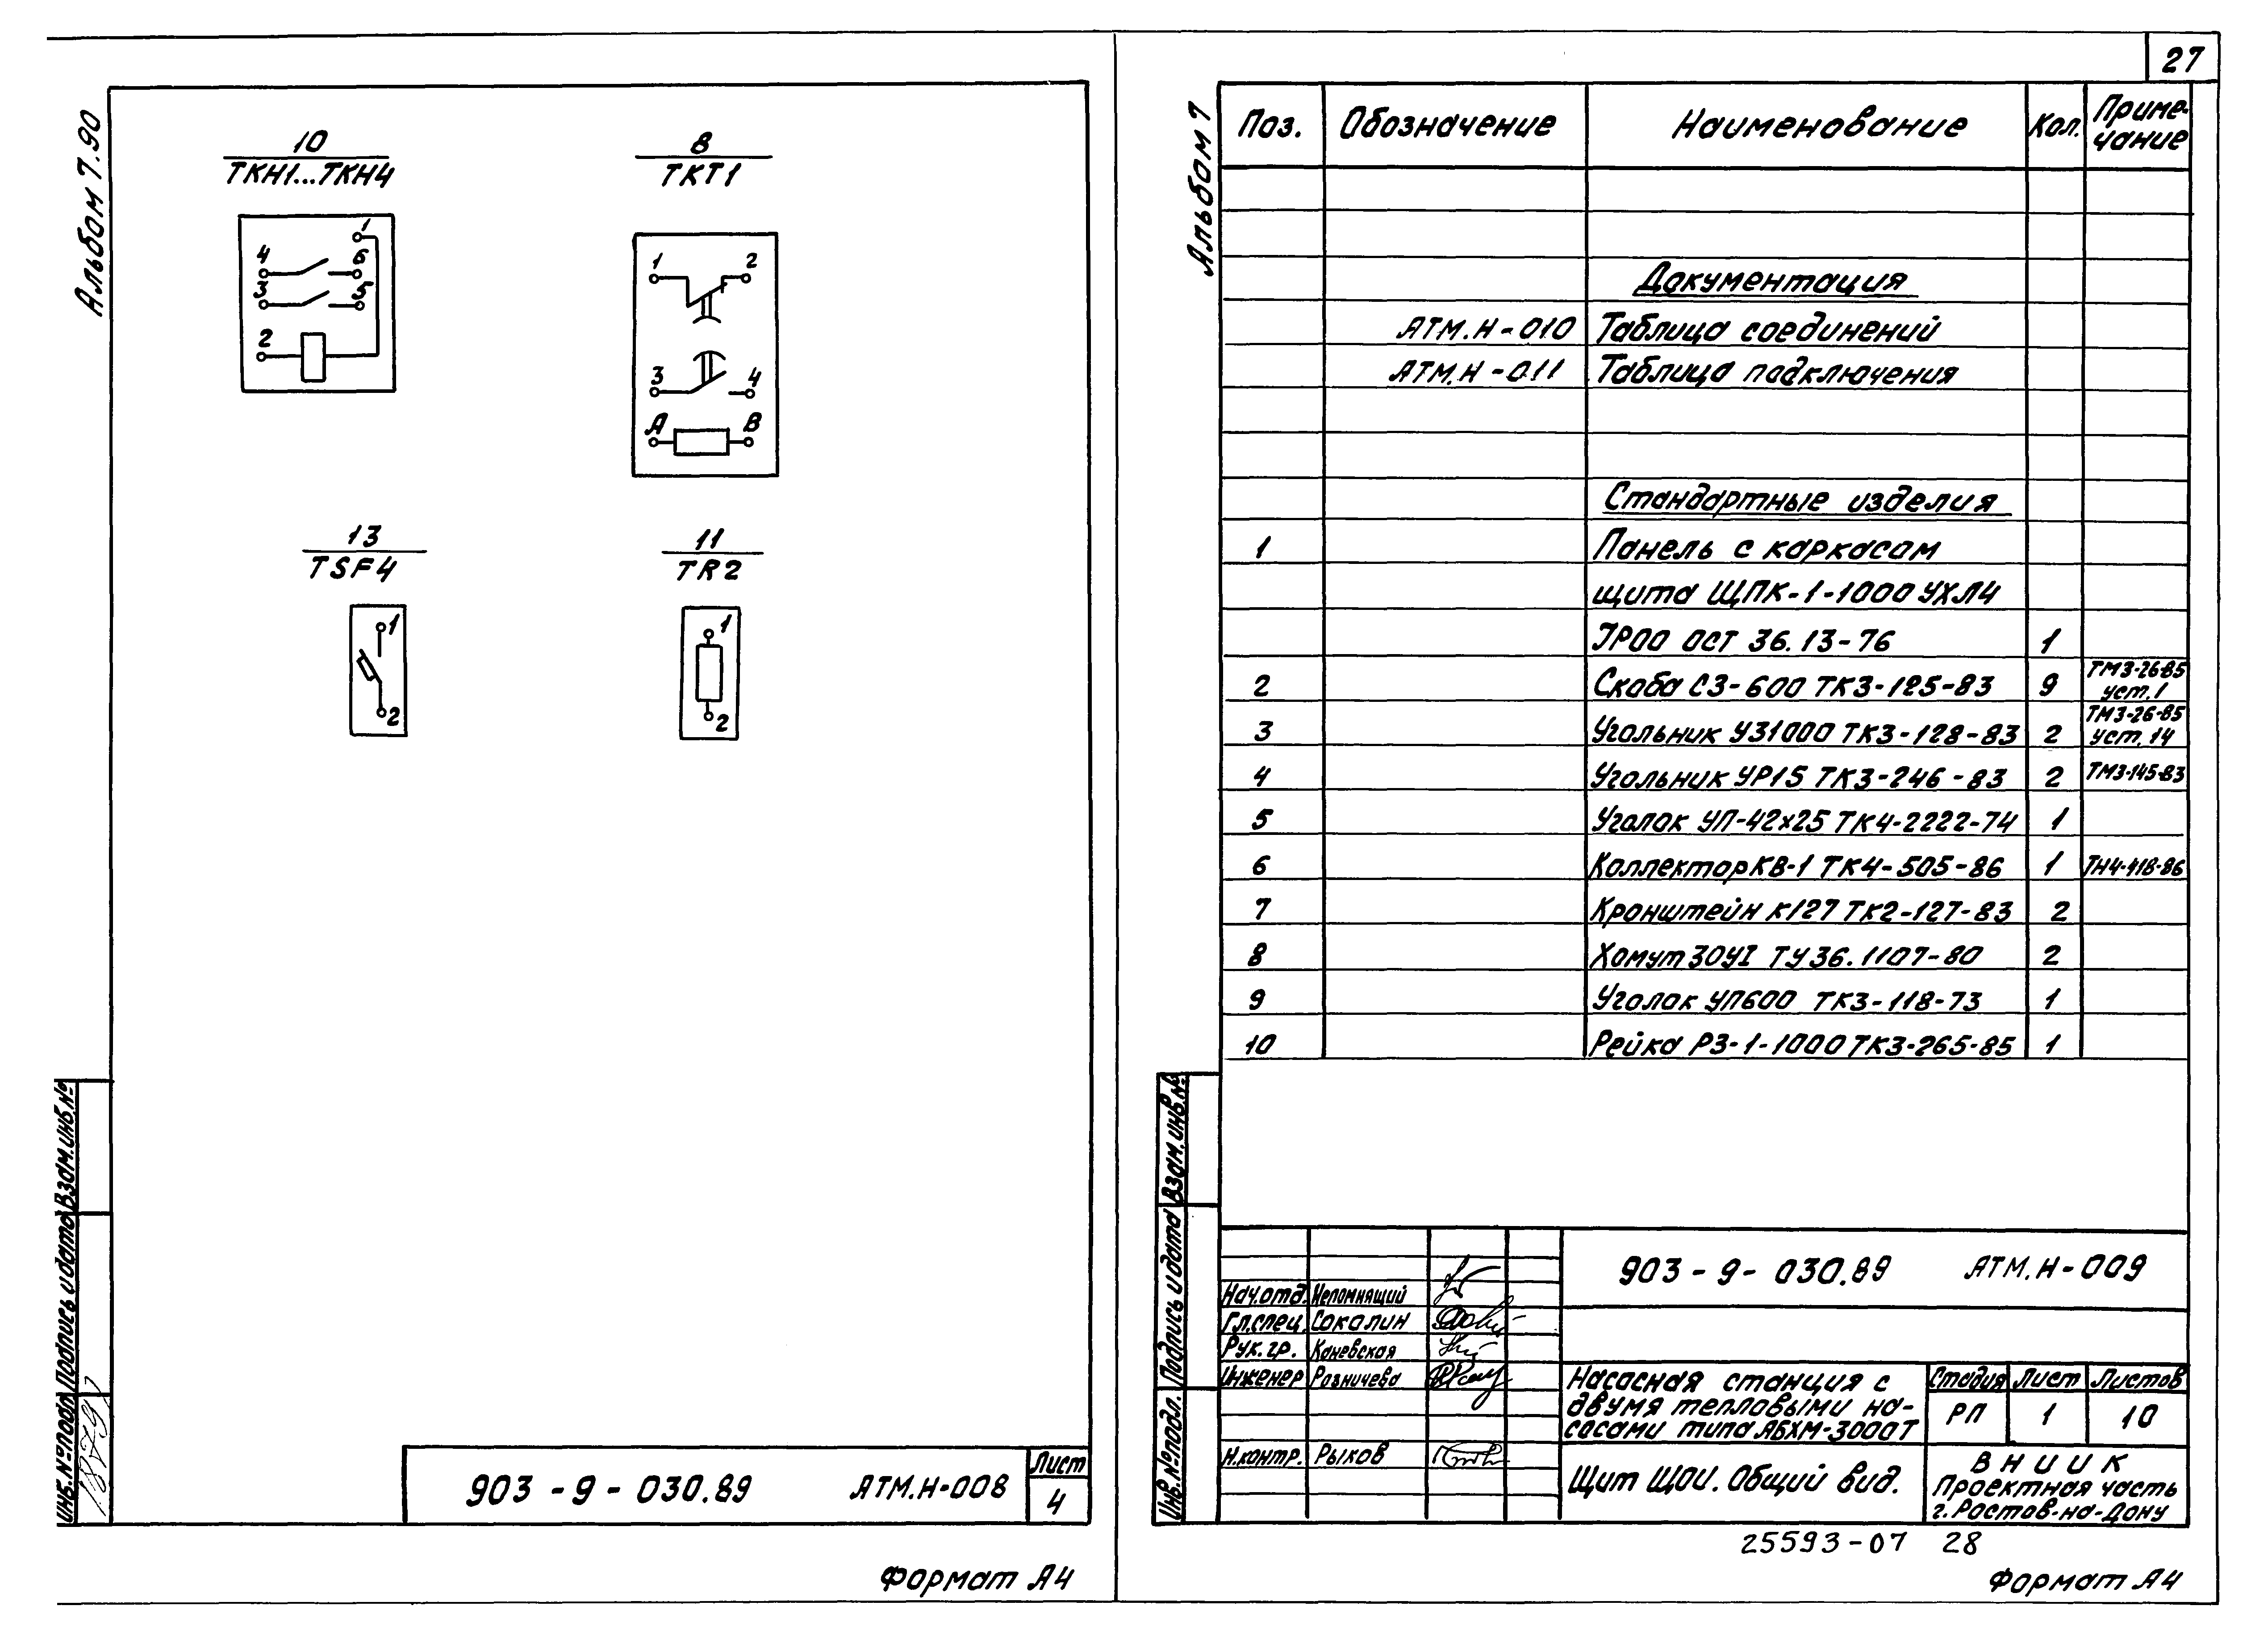 27
Альбом 7.90
10
ТКН1...ТКН4
8
ТКТ1
1
4
6
3
5
2
1
2
3
4
А
В
13
TSF4
11
TR2
1
2
1
2
Взам.инв.№
Подпись и дата
Инв.№ подл.
903-9-030.89
АТМ.Н-008
Лист
4
Формат А4
Альбом 7
Поз. Обозначение Наименование Кол. Приме-
чание
Документация
АТМ.Н-010 Таблица соединений
АТМ.Н-011 Таблица подключения
Стандартные изделия
1 Панель с каркасом
щита ЩПК-1-1000 УХЛ4
IР00 ОСТ 36.13-76 1
2 Скоба С3-600 ТК3-125-83 9 ТМ3-26-85
уст.1
3 Угольник У31000 ТК3-128-83 2 ТМ3-26-85
уст.14
4 Угольник УР15 ТК3-246-83 2 ТМ3-145-83
5 Уголок УП-42х25 ТК4-2222-74 1
6 Коллектор КВ-1 ТК4-505-86 1 ТМ4-418-86
7 Кронштейн К127 ТК2-127-83 2
8 Хомут 30УI ТУ36.1107-80 2
9 Уголок УП600 ТК3-118-73 1
10 Рейка Р3-1-1000 ТК3-265-85 1
Взам.инв.№
Подпись и дата
Инв.№ подл.
903-9-030.89 АТМ.Н-009
Нач.отд. Непомнящий
Гл.спец. Соколин
Рук.гр. Каневская
Инженер Розничева
Н.контр. Рыков
Насосная станция с
двумя тепловыми на-
сосами типа АБХМ-3000Т
Стадия Лист Листов
РП 1 10
Щит ЩОИ. Общий вид.
ВНИИК
Проектная часть
г. Ростов-на-Дону
25593-07 28
Формат А4